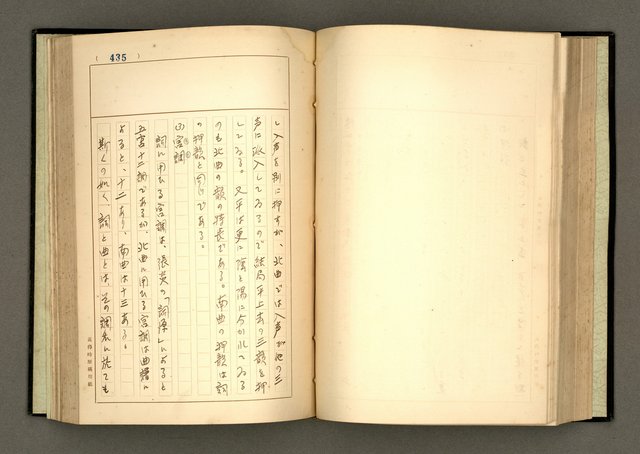 ( 435 )
し入声を別に押すが、北曲では入声が他の三
声に派入してゐるので結局平上去の三韻を押
してゐる。又平は更に陰と陽に分かれてゐる
のも北曲の韻の特長である。南曲の押韻は詞
の押韻と同じである。
宮調
詞に用ひる宮調は、張炎の「詞源」によると
五宮十二調であるが、北曲に用ひる宮調は曲譜に
よると、十二あり、南曲は十三ある。
斯くの如く、詞と曲とは、その調名に於ても